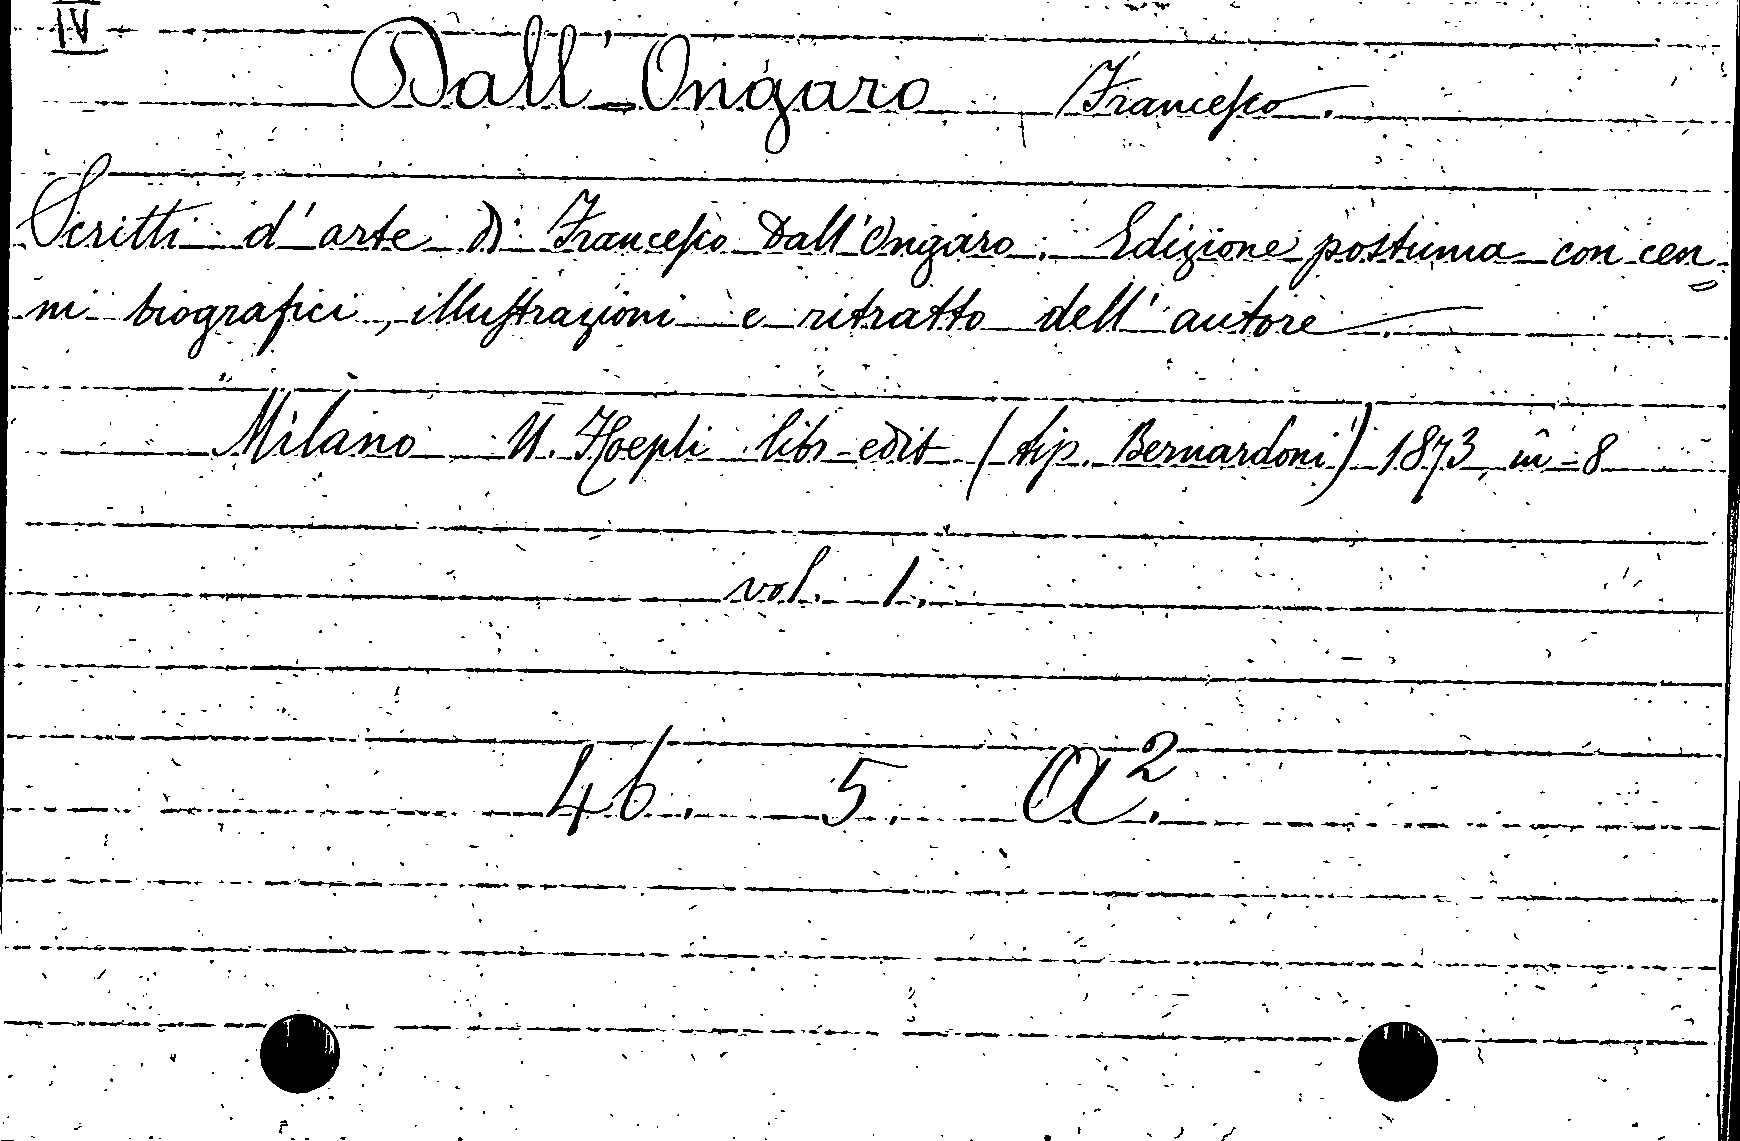 IV
Dall'Ongaro Francesco.
Scritti d'arte di Francesco Dall'Ongaro. Edizione postuma con cen=
ni biografici, illustrazioni e ritratto dell'autore.
Milano U. Hoepli libr-edit (tip. Bernardoni) 1873, in-8
vol. 1.
46. 5. A².